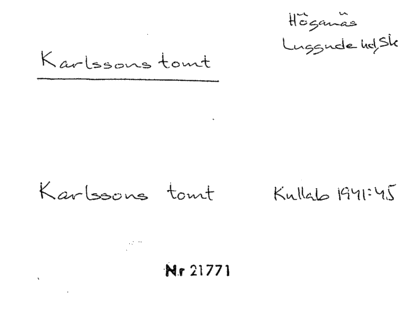 Höganäs
Luggude hd, Sk
Karlssons tomt
Karlssons tomt Kullab 1941:45
Nr 21771